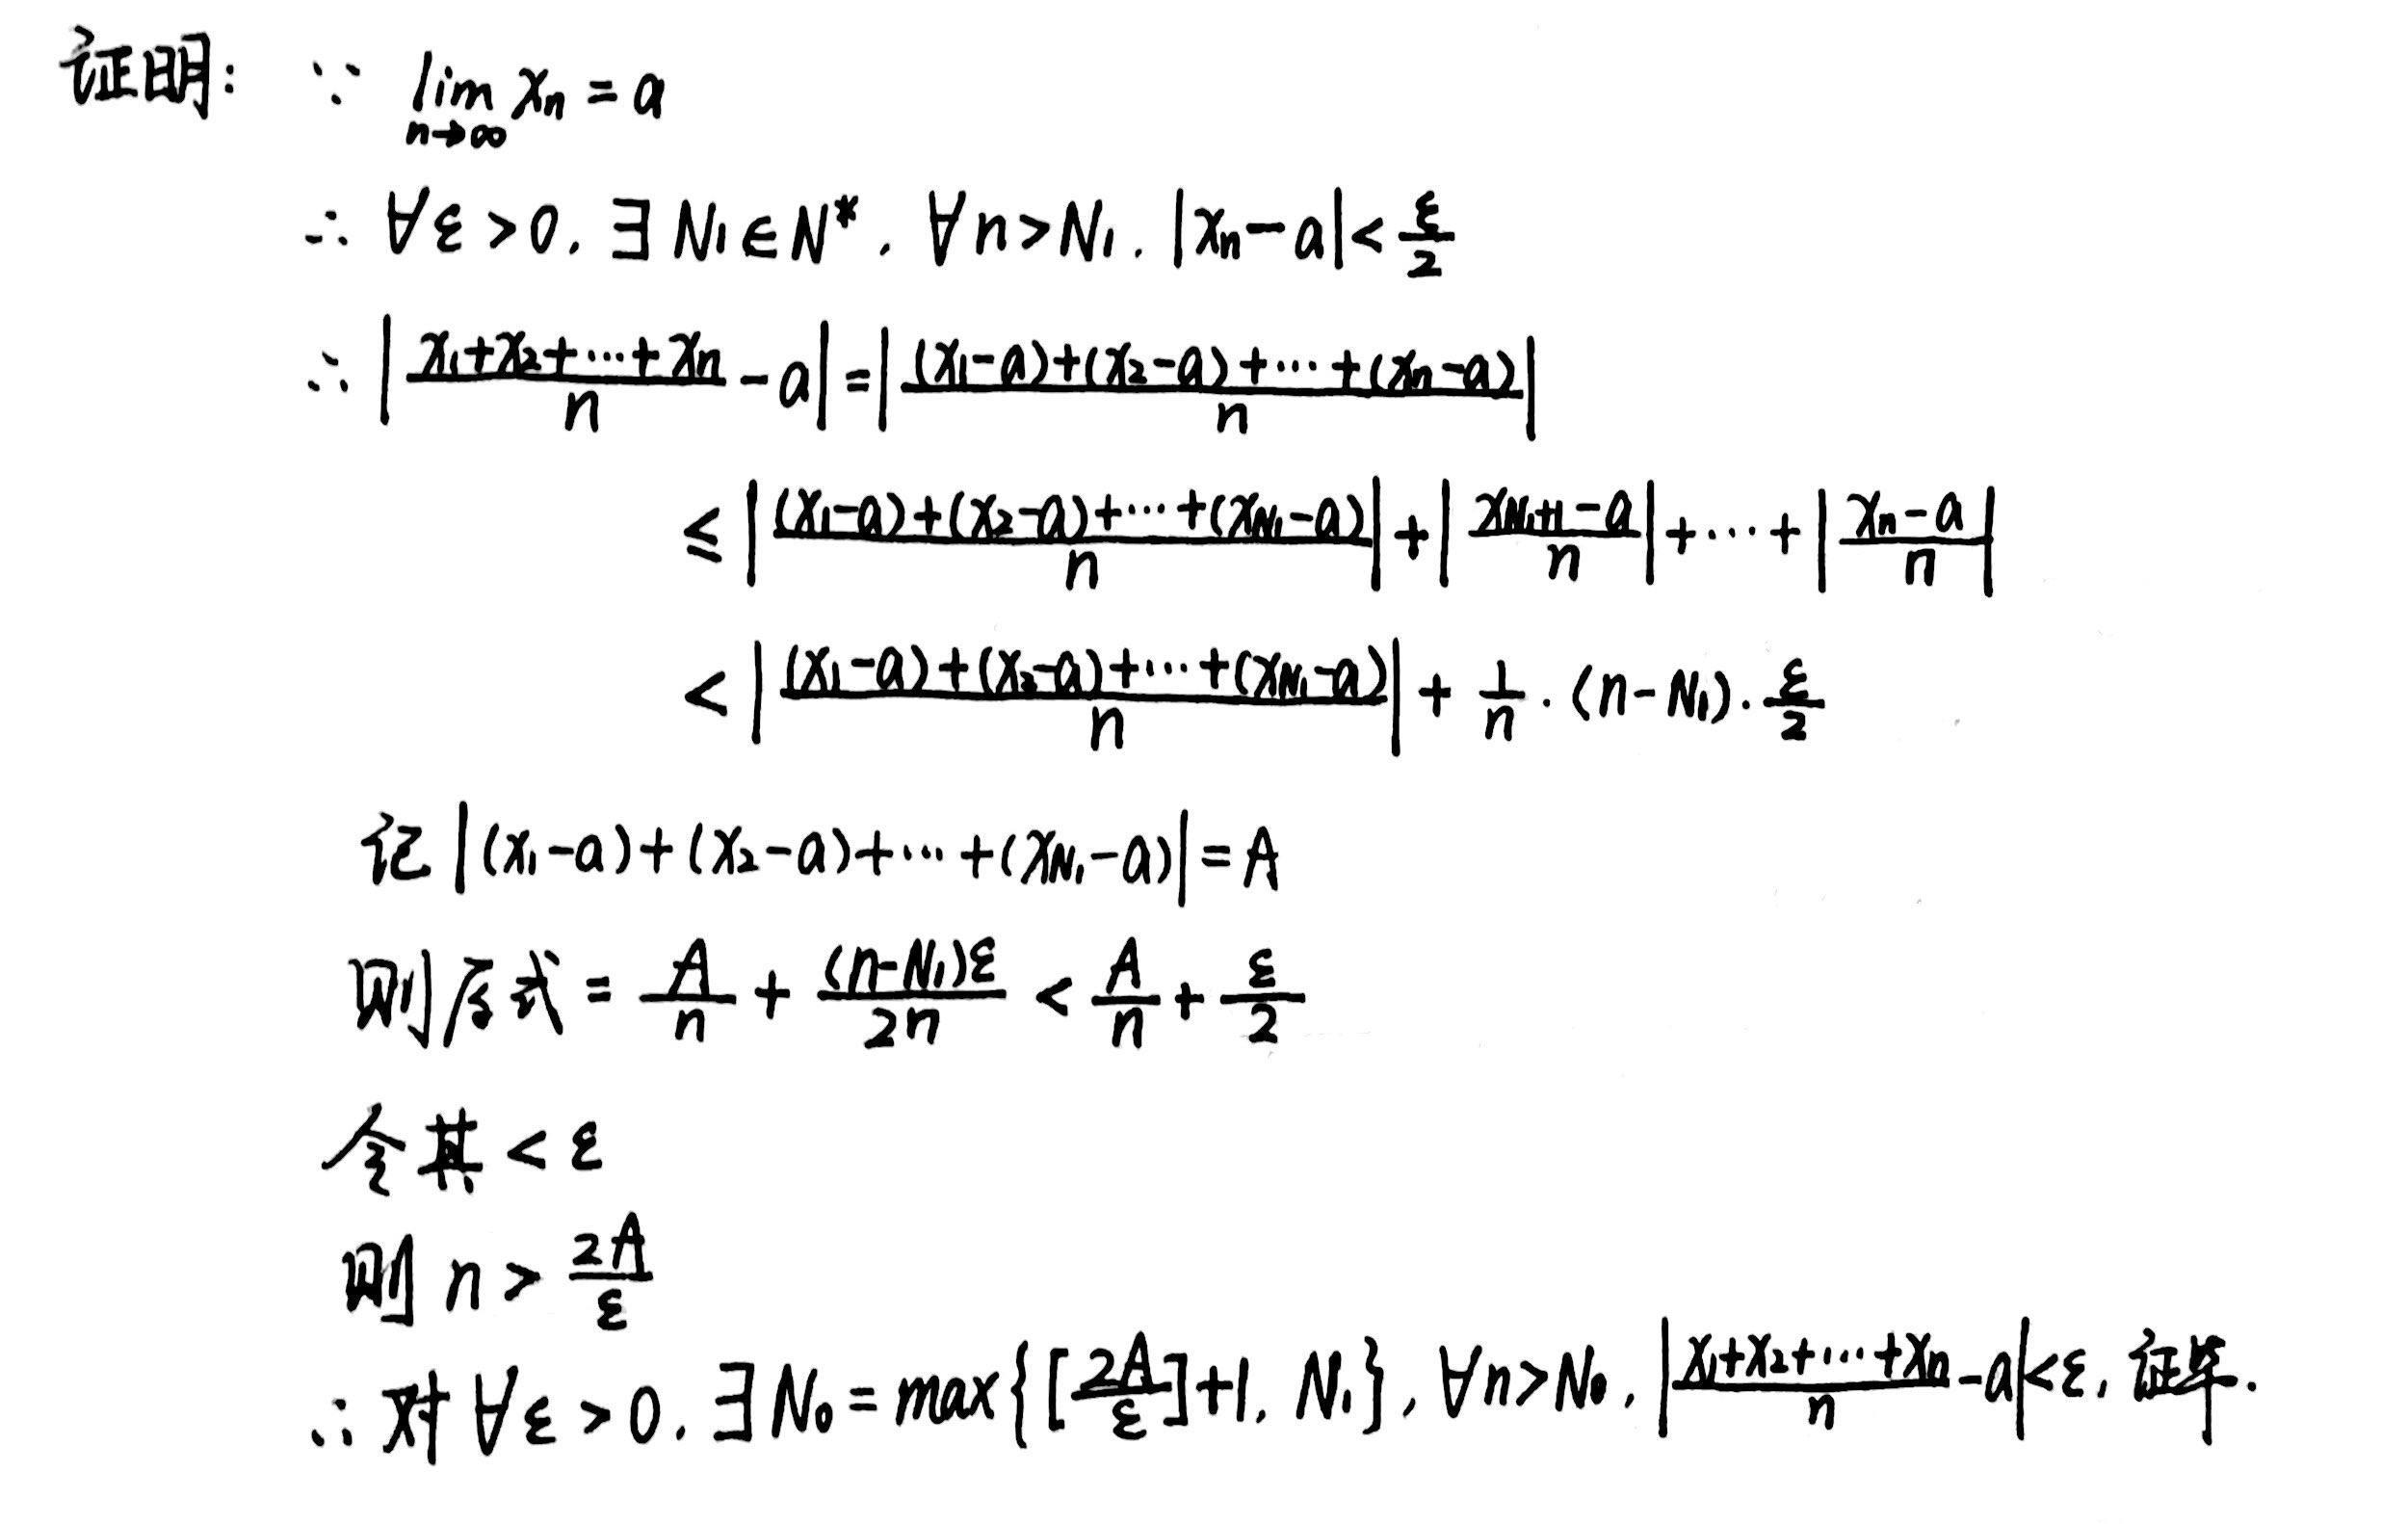 证明: ∵ lim_{n→∞} xn = a
∴ ∀ε>0, ∃N₁∈N*, ∀n>N₁, |xn-a|<ε/2
∴ |(x₁+x₂+…+xn)/n - a| = |((x₁-a)+(x₂-a)+…+(xn-a))/n|
≤ |((x₁-a)+(x₂-a)+…+(x_{N₁}-a))/n| + |(x_{N₁+1}-a)/n| + … + |(xn-a)/n|
< |((x₁-a)+(x₂-a)+…+(x_{N₁}-a))/n| + 1/n · (n-N₁) · ε/2
记 |(x₁-a)+(x₂-a)+…+(x_{N₁}-a)| = A
则原式 = A/n + (n-N₁)ε/2n < A/n + ε/2
令其 < ε
则 n > 2A/ε
∴ 对∀ε>0, ∃N₀ = max{[2A/ε]+1, N₁}, ∀n>N₀, |(x₁+x₂+…+xn)/n - a|<ε, 证毕.